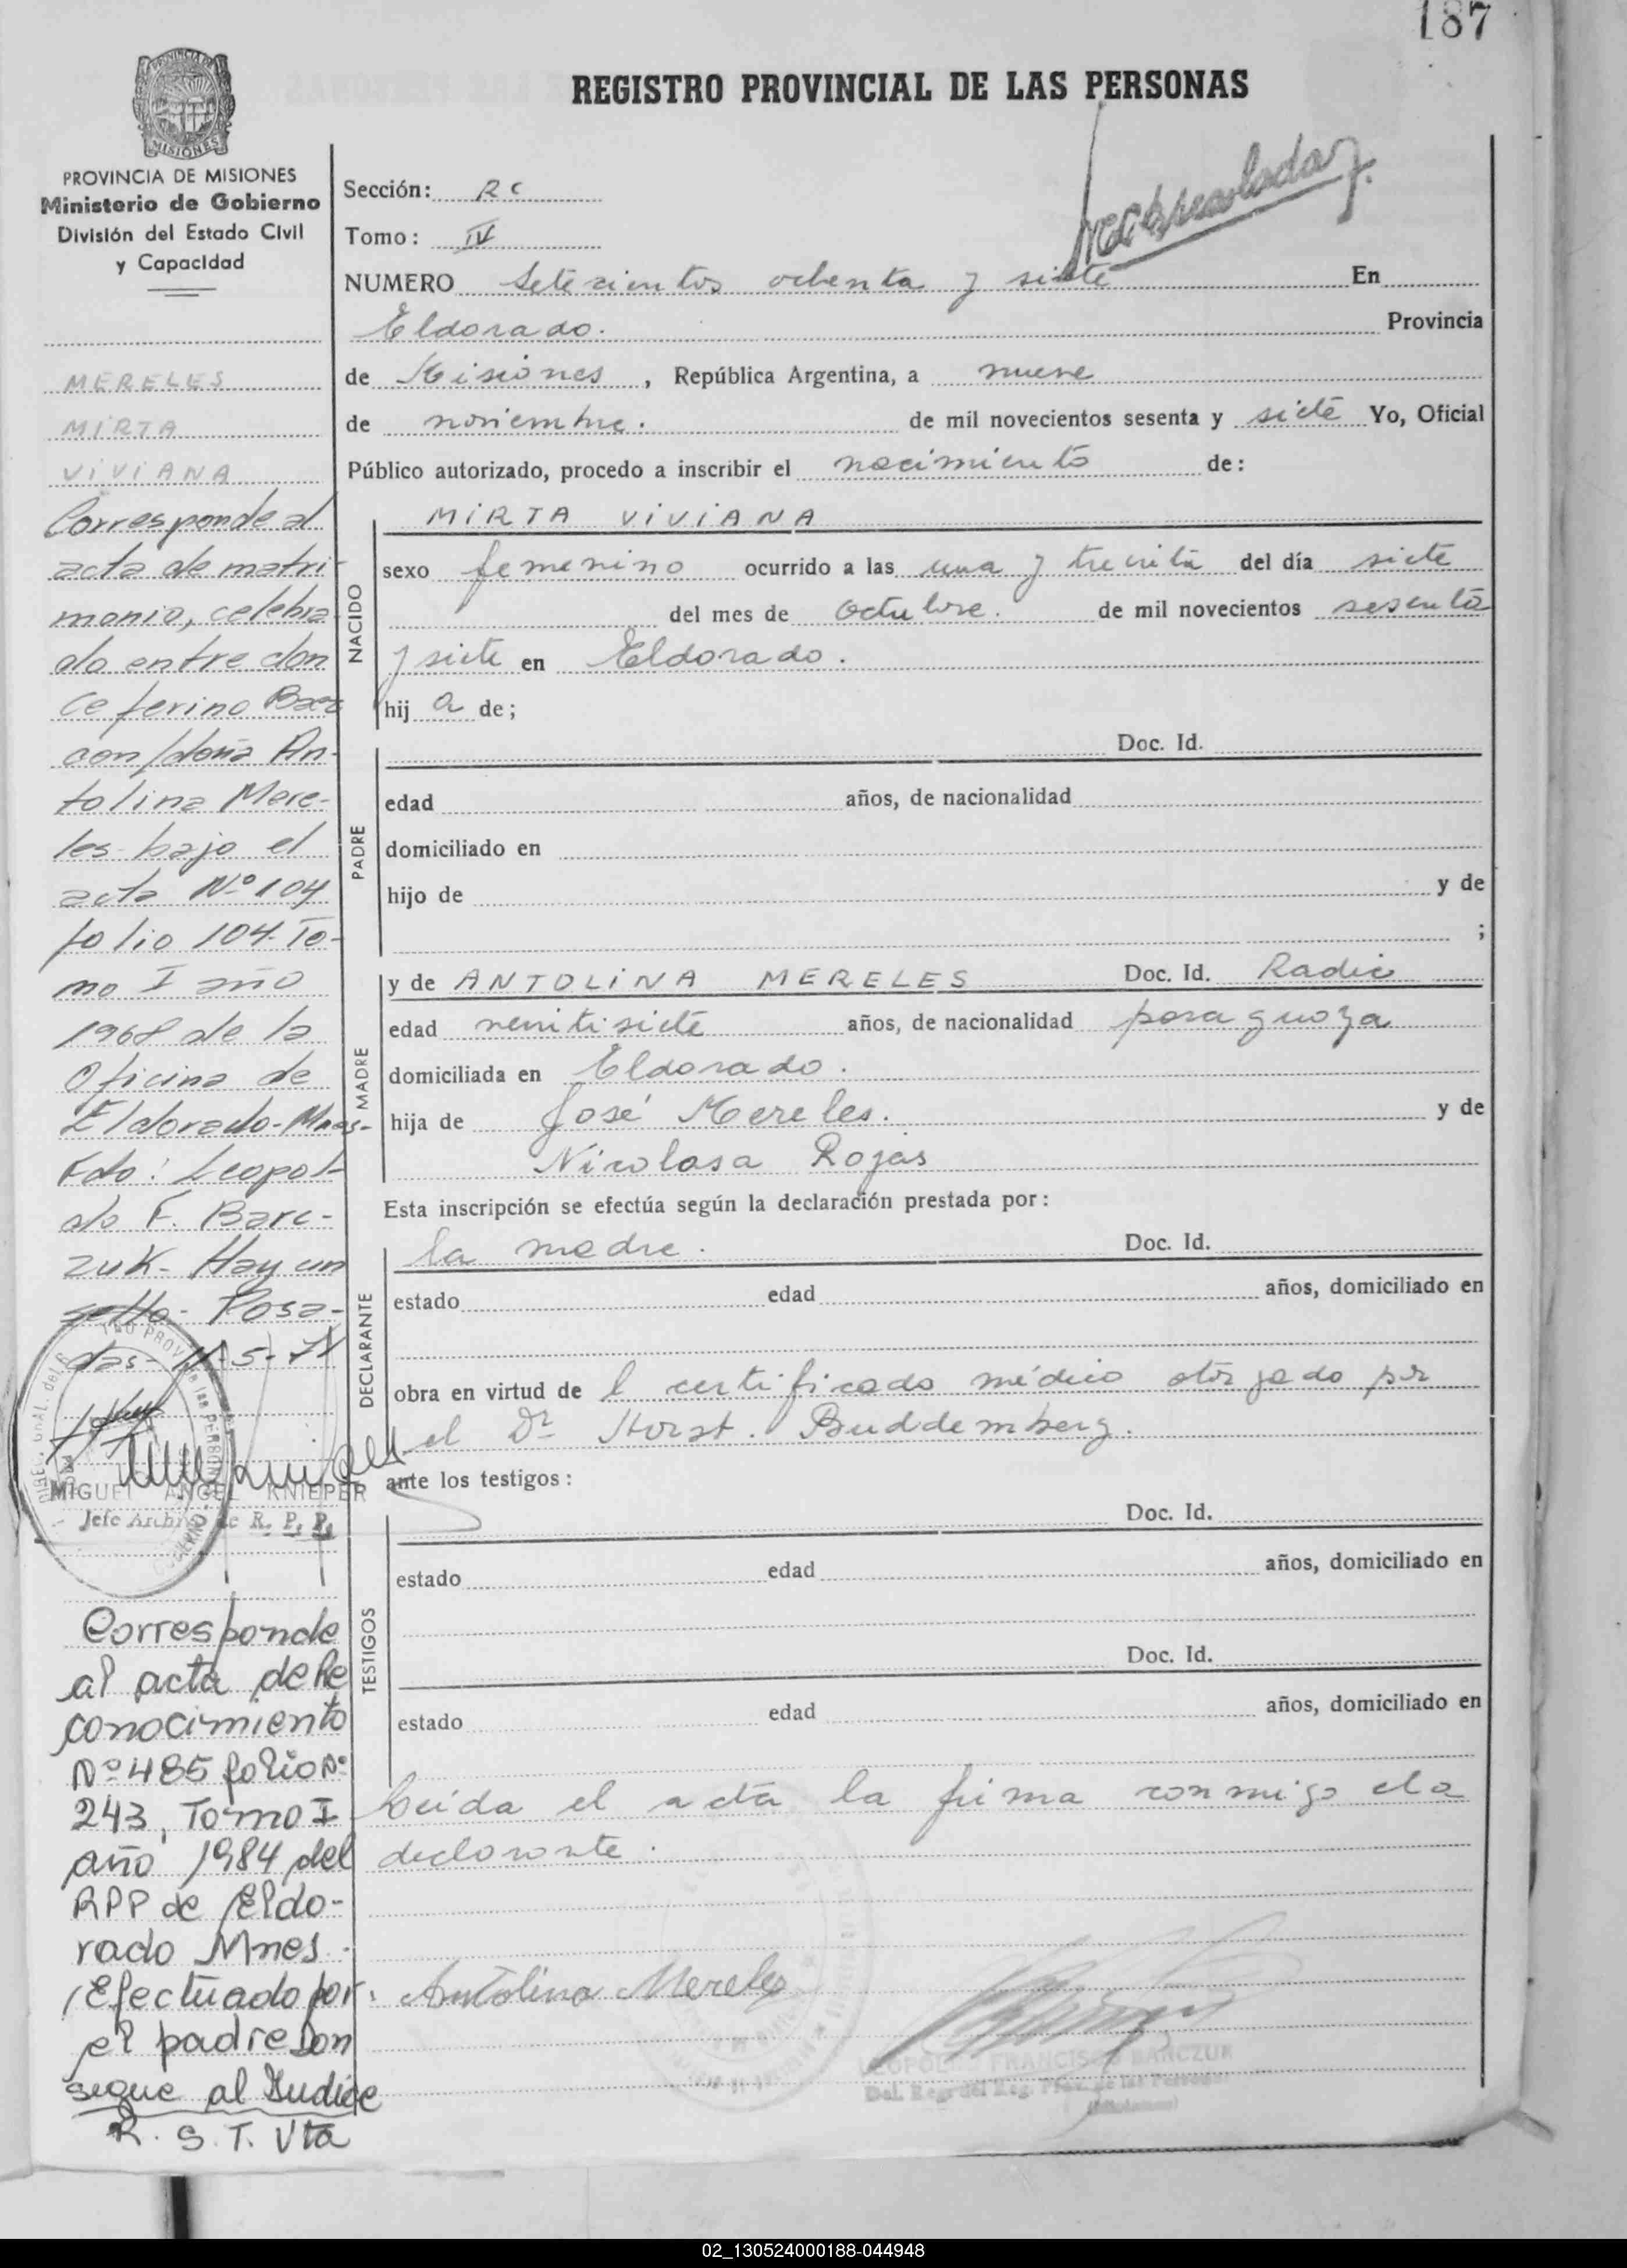 187
REGISTRO PROVINCIAL DE LAS PERSONAS
MISIONES
PROVINCIA DE MISIONES
Ministerio de Gobierno
División del Estado Civil
y Capacidad
MERELES
MIRTA
VIVIANA
Corresponde al
acta de matri-
monio, celebra
do entre don
Ceferino Baez
con/doña An-
tolina Mere-
les bajo el
acta Nº 104
folio 104 To-
mo I año
1968 de la
Oficina de
Eldorado-Mnes-
Fdo: Leopol-
do F. Barc-
zuk- Hay un
sello- Posa-
das- 11-5-71
MIGUEL ANGEL KNIEPER
Jefe Archivo de R. P. P.
Corresponde
al acta de Re
conocimiento
Nº 485 folio Nº
243, Tomo I
año 1984 del
RPP de Eldo-
rado Mnes.
Efectuado por
el padre Don
sigue al Indice
R. S. T. Vta
Sección: RC
Tomo: IV
NUMERO Setecientos ochenta y siete En
Eldorado. Provincia
de Misiones, República Argentina, a nueve
de noviembre. de mil novecientos sesenta y siete Yo, Oficial
Público autorizado, procedo a inscribir el nacimiento de:
NACIDO
MIRTA VIVIANA
sexo femenino ocurrido a las una y treinta del día siete
del mes de octubre. de mil novecientos sesenta
y siete en Eldorado.
hij a de;
PADRE
Doc. Id.
edad años, de nacionalidad
domiciliado en
hijo de y de
;
MADRE
y de ANTOLINA MERELES Doc. Id. Radic
edad veintisiete años, de nacionalidad paraguaya
domiciliada en Eldorado.
hija de José Mereles. y de
Nicolasa Rojas
Esta inscripción se efectúa según la declaración prestada por:
DECLARANTE
la madre. Doc. Id.
estado edad años, domiciliado en
obra en virtud de l certificado médico otorgado por
el Dr Horst. Buddemberg.
ante los testigos:
TESTIGOS
Doc. Id.
estado edad años, domiciliado en
Doc. Id.
estado edad años, domiciliado en
Leida el acta la firma conmigo ela
declarante.
Antolina Mereles
LEOPOLDO FRANCISCO BARCZUK
02_130524000188-044948